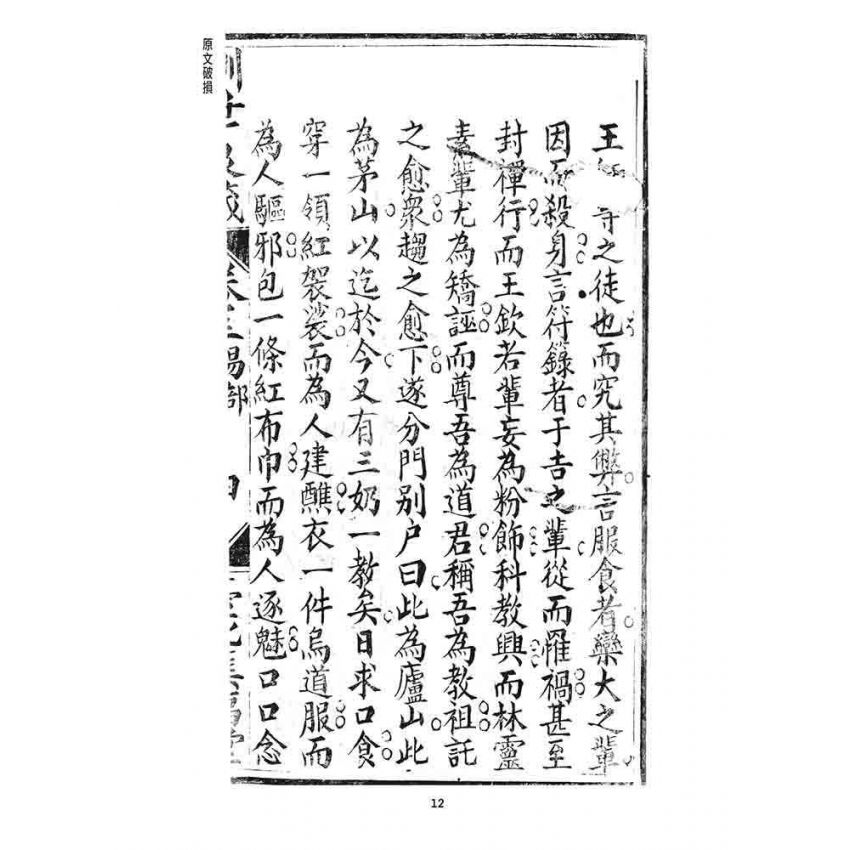 王守之徒也而究其弊言服食者欒大之輩
因而殺身言符籙者于吉之輩從而罹禍甚至
封禪行而王欽若輩妄為粉飾科教興而林靈
素輩尤為矯誣而尊吾為道君稱吾為教祖託
之愈衆趨之愈下遂分門別户曰此為廬山此
為茅山以迄於今又有三奶一教矣日求口食
穿一領紅袈裟而為人建醮衣一件烏道服而
為人驅邪包一條紅布巾而為人逐魅口口念
卷三 陽部
原文破損
12